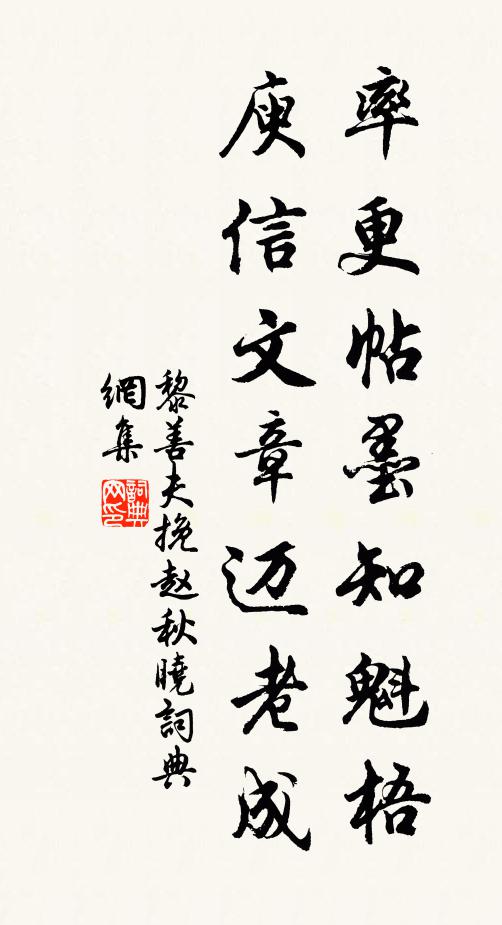 率更帖墨知魁梧
庾信文章迈老成
黎善夫挽赵秋曉詞典
網集
詞典
网印